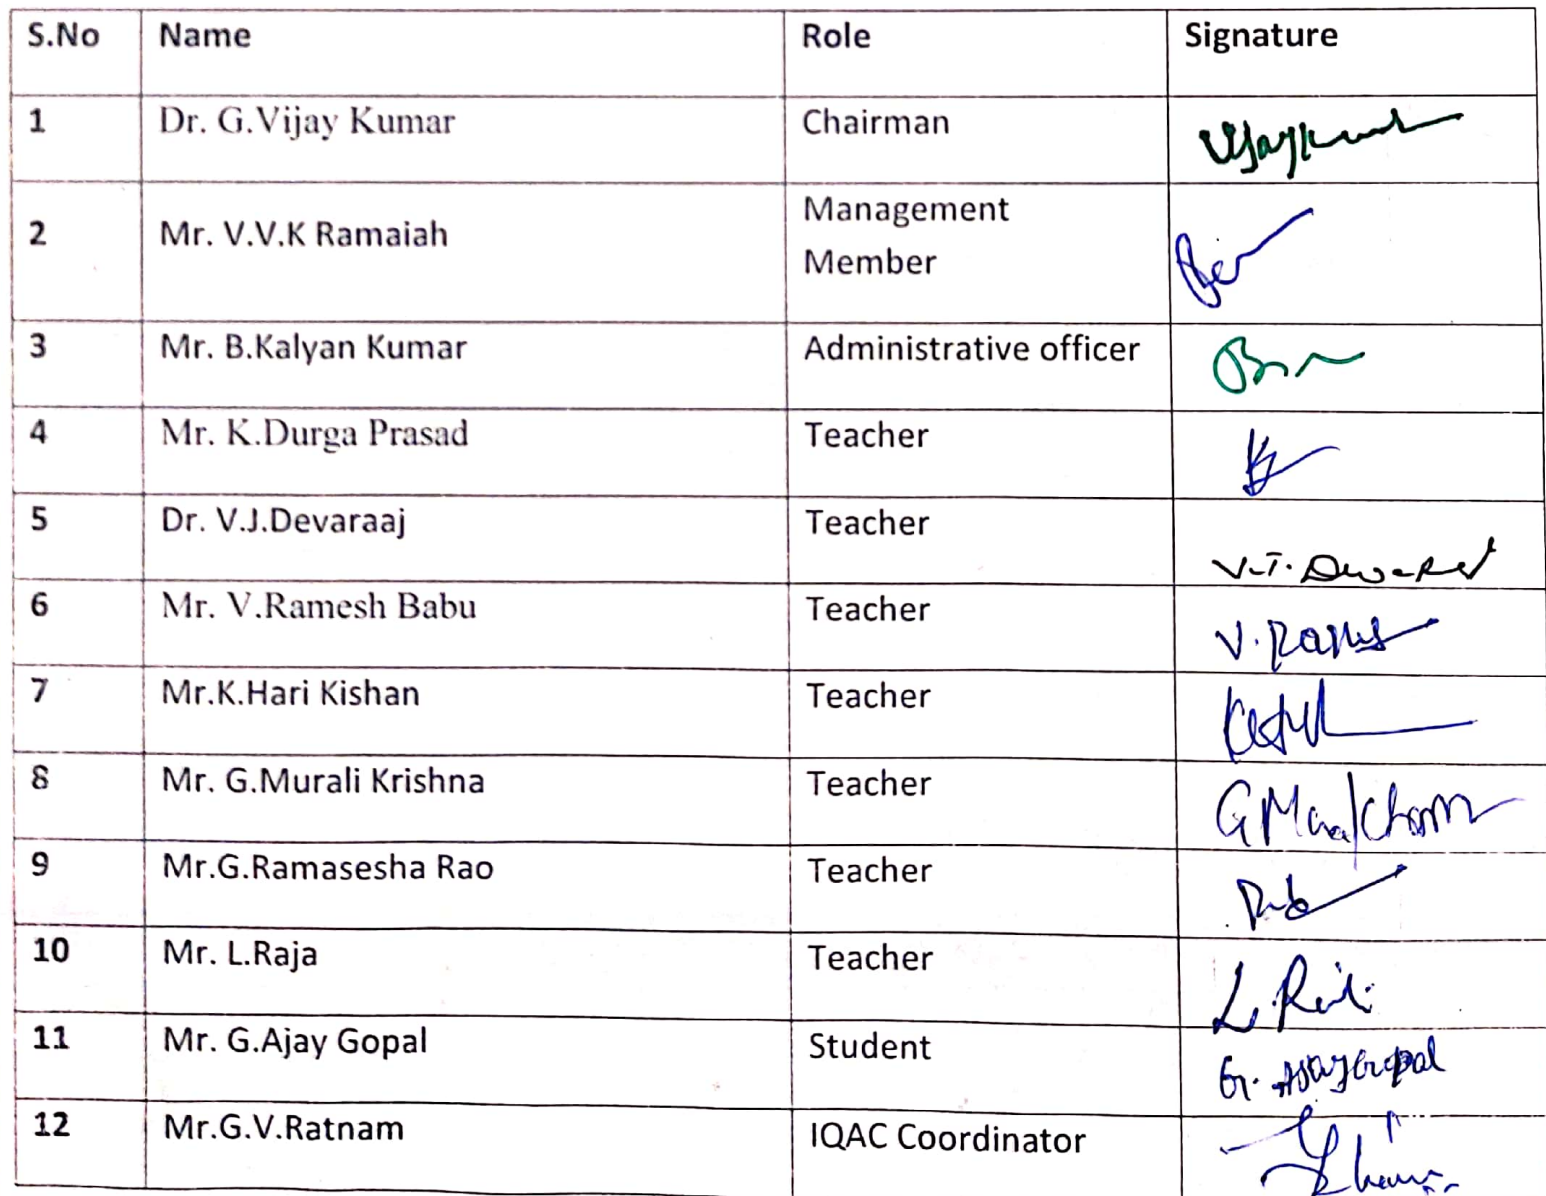 S.No Name Role Signature
1 Dr. G.Vijay Kumar Chairman Vijaykumar
2 Mr. V.V.K Ramaiah Management
Member
3 Mr. B.Kalyan Kumar Administrative officer
4 Mr. K.Durga Prasad Teacher
5 Dr. V.J.Devaraaj Teacher
6 Mr. V.Ramesh Babu Teacher
7 Mr.K.Hari Kishan Teacher
8 Mr. G.Murali Krishna Teacher
9 Mr.G.Ramasesha Rao Teacher
10 Mr. L.Raja Teacher
11 Mr. G.Ajay Gopal Student G. Ajay Gopal
12 Mr.G.V.Ratnam IQAC Coordinator